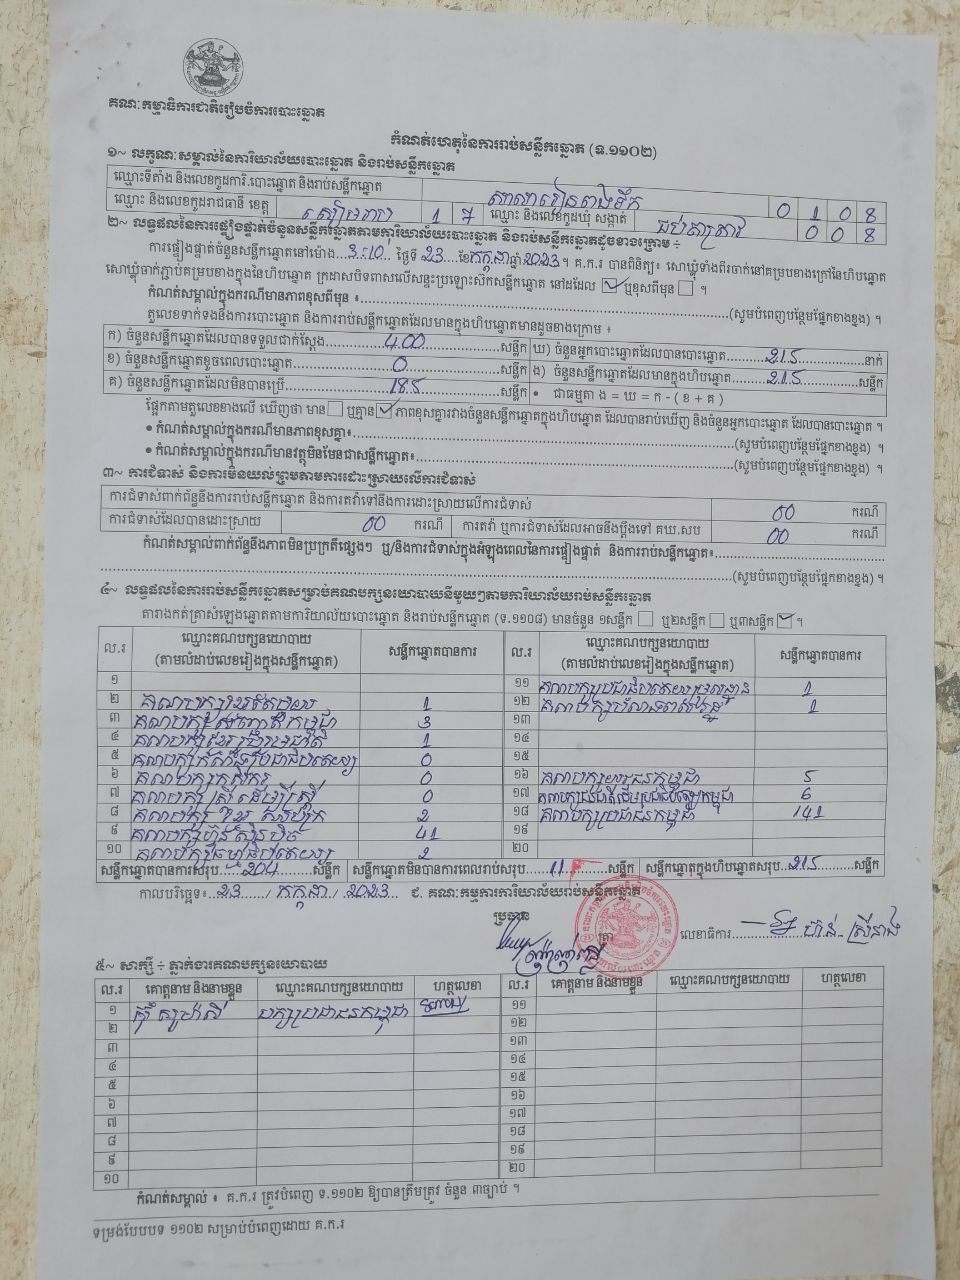 គណៈកម្មាធិការជាតិរៀបចំការបោះឆ្នោត
កំណត់ហេតុនៃការរាប់សន្លឹកឆ្នោត (ទ.១១០២)
១~ លក្ខណៈសម្គាល់នៃការិយាល័យបោះឆ្នោត និងរាប់សន្លឹកឆ្នោត
ឈ្មោះទីតាំង និងលេខកូដការិ.បោះឆ្នោត និងរាប់សន្លឹកឆ្នោត 0 1 0 8
ឈ្មោះ និងលេខកូដរាជធានី ខេត្ត សៀមរាប 1 7 ឈ្មោះ និងលេខកូដឃុំ សង្កាត់ 0 0 8
២~ លទ្ធផលនៃការផ្ទៀងផ្ទាត់ចំនួនសន្លឹកឆ្នោតតាមការិយាល័យបោះឆ្នោត និងរាប់សន្លឹកឆ្នោតដូចខាងក្រោម ÷
ការផ្ទៀងផ្ទាត់ចំនួនសន្លឹកឆ្នោតនៅម៉ោង...3:10...ថ្ងៃទី 23 ខែកក្កដាឆ្នាំ 2023 ។ គ.ក.រ បានពិនិត្យ៖ សោឃ្លុំទាំងពីរចាក់នៅគម្របខាងក្រៅនៃហិបឆ្នោត
សោឃ្លុំចាក់ភ្ជាប់គម្របខាងក្នុងនៃហិបឆ្នោត ក្រដាសបិទពាសលើសន្ទះប្រឡោះស៊កសន្លឹកឆ្នោត នៅដដែល ឬខុសពីមុន ។
កំណត់សម្គាល់ក្នុងករណីមានភាពខុសពីមុន ៖...(សូមបំពេញបន្ថែមផ្នែកខាងខ្នង) ។
តួលេខទាក់ទងនឹងការបោះឆ្នោត និងការរាប់សន្លឹកឆ្នោតដែលមានក្នុងហិបឆ្នោតមានដូចខាងក្រោម ៖
ក) ចំនួនសន្លឹកឆ្នោតដែលបានទទួលជាក់ស្តែង...400...សន្លឹក ឃ) ចំនួនអ្នកបោះឆ្នោតដែលបានបោះឆ្នោត...215...នាក់
ខ) ចំនួនសន្លឹកឆ្នោតខូចពេលបោះឆ្នោត...0...សន្លឹក ង) ចំនួនសន្លឹកឆ្នោតដែលមានក្នុងហិបឆ្នោត...215...សន្លឹក
គ) ចំនួនសន្លឹកឆ្នោតដែលមិនបានប្រើ...185...សន្លឹក • ជាធម្មតា ង = ឃ = ក - ( ខ + គ )
ផ្អែកតាមតួលេខខាងលើ ឃើញថា មាន ឬគ្មាន ភាពខុសគ្នារវាងចំនួនសន្លឹកឆ្នោតក្នុងហិបឆ្នោត ដែលបានរាប់ឃើញ និងចំនួនអ្នកបោះឆ្នោត ដែលបានបោះឆ្នោត ។
• កំណត់សម្គាល់ក្នុងករណីមានភាពខុសគ្នា៖...(សូមបំពេញបន្ថែមផ្នែកខាងខ្នង) ។
• កំណត់សម្គាល់ក្នុងករណីមានវត្ថុមិនមែនជាសន្លឹកឆ្នោត៖...(សូមបំពេញបន្ថែមផ្នែកខាងខ្នង) ។
៣~ ការជំទាស់ និងការមិនយល់ព្រមតាមការដោះស្រាយលើការជំទាស់
ការជំទាស់ពាក់ព័ន្ធនឹងការរាប់សន្លឹកឆ្នោត និងការតវ៉ាទៅនឹងការដោះស្រាយលើការជំទាស់ 00 ករណី
ការជំទាស់ដែលបានដោះស្រាយ 00 ករណី ការតវ៉ា ឬការជំទាស់ដែលអាចនឹងប្តឹងទៅ គឃ.សប 00 ករណី
កំណត់សម្គាល់ពាក់ព័ន្ធនឹងភាពមិនប្រក្រតីផ្សេងៗ ឬ/និងការជំទាស់ក្នុងអំឡុងពេលនៃការផ្ទៀងផ្ទាត់ និងការរាប់សន្លឹកឆ្នោត៖...
...(សូមបំពេញបន្ថែមផ្នែកខាងខ្នង) ។
៤~ លទ្ធផលនៃការរាប់សន្លឹកឆ្នោតសម្រាប់គណបក្សនយោបាយនីមួយៗតាមការិយាល័យរាប់សន្លឹកឆ្នោត
តារាងកត់ត្រាសំឡេងឆ្នោតតាមការិយាល័យបោះឆ្នោត និងរាប់សន្លឹកឆ្នោត (ទ.១១០៨) មានចំនួន ១សន្លឹក ឬ២សន្លឹក ឬ៣សន្លឹក ។
ល.រ ឈ្មោះគណបក្សនយោបាយ (តាមលំដាប់លេខរៀងក្នុងសន្លឹកឆ្នោត) សន្លឹកឆ្នោតបានការ ល.រ ឈ្មោះគណបក្សនយោបាយ (តាមលំដាប់លេខរៀងក្នុងសន្លឹកឆ្នោត) សន្លឹកឆ្នោតបានការ
១ ១១ គណបក្សប្រជាធិបតេយ្យមូលដ្ឋាន 1
២ គណបក្សខ្មែរតែមួយ 1 ១២ 1
៣ គណបក្សសញ្ជាតិកម្ពុជា 3 ១៣
៤ គណបក្សខ្មែររួបរួមជាតិ 1 ១៤
៥ 0 ១៥
៦ គណបក្សកសិករ 0 ១៦ គណបក្សយុវជនកម្ពុជា 5
៧ គណបក្សស្ត្រីដើម្បីស្ត្រី 0 ១៧ 6
៨ គណបក្សខ្មែរអភិរក្ស 2 ១៨ គណបក្សប្រជាជនកម្ពុជា 141
៩ គណបក្សហ្វ៊ុនស៊ិនប៉ិច 41 ១៩
១០ គណបក្សធម្មាធិបតេយ្យ 2 ២០
សន្លឹកឆ្នោតបានការសរុប...204...សន្លឹក សន្លឹកឆ្នោតមិនបានការពេលរាប់សរុប...11...សន្លឹក សន្លឹកឆ្នោតក្នុងហិបឆ្នោតសរុប...215...សន្លឹក
កាលបរិច្ឆេទ៖...23.../ កក្កដា / 2023... ជ. គណៈកម្មការការិយាល័យរាប់សន្លឹកឆ្នោត
ប្រធាន
ត្រា លេខាធិការ
៥~ សាក្សី ÷ ភ្នាក់ងារគណបក្សនយោបាយ
ល.រ គោត្តនាម និងនាមខ្លួន ឈ្មោះគណបក្សនយោបាយ ហត្ថលេខា ល.រ គោត្តនាម និងនាមខ្លួន ឈ្មោះគណបក្សនយោបាយ ហត្ថលេខា
១ បក្សប្រជាជនកម្ពុជា ១១
២ ១២
៣ ១៣
៤ ១៤
៥ ១៥
៦ ១៦
៧ ១៧
៨ ១៨
៩ ១៩
១០ ២០
កំណត់សម្គាល់ ៖ គ.ក.រ ត្រូវបំពេញ ទ.១១០២ ឱ្យបានត្រឹមត្រូវ ចំនួន ៣ច្បាប់ ។
ទម្រង់បែបបទ ១១០២ សម្រាប់បំពេញដោយ គ.ក.រ